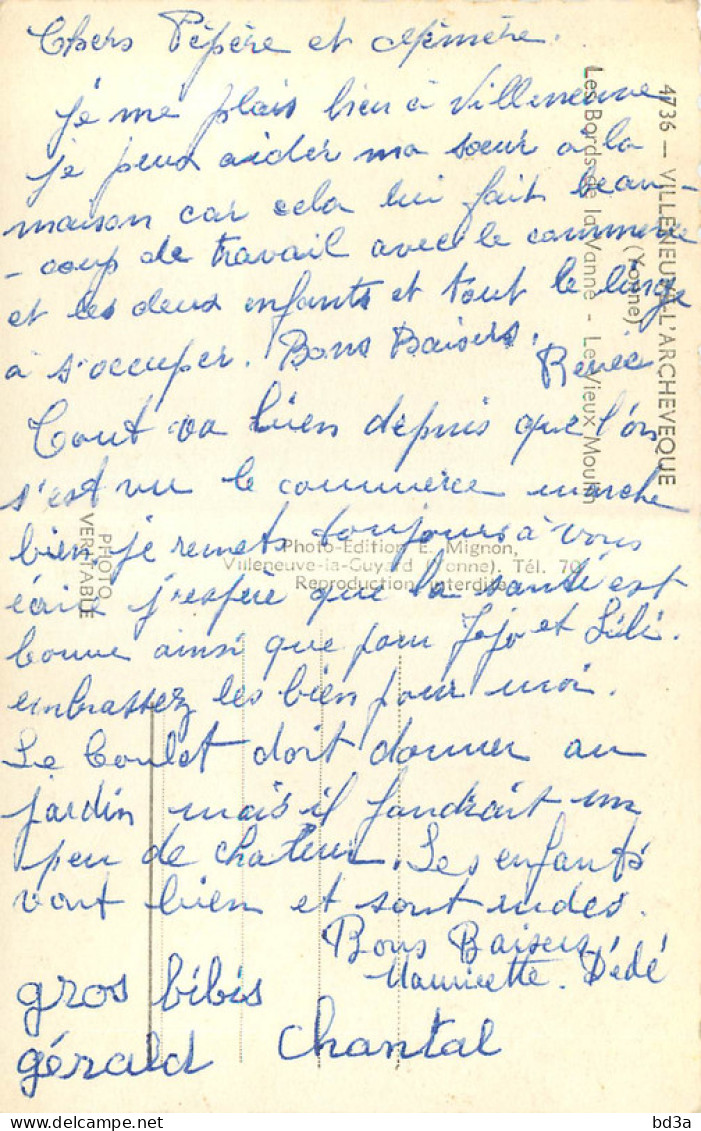 Chers Pépère et Mémère.
Je me plais bien à Villeneuve
je peux aider ma sœur a la
maison car cela lui fait beau-
-coup de travail avec le commerce
et les deux enfants et tout le linge
a s'occuper. Bons Baisers.
Renée
Tout va bien depuis que l'on
s'est vu le commerce marche
bien je remets toujours à vous
écrire j'espère que la santé est
bonne ainsi que pour Jojo et Lili.
embrassez les bien pour moi.
Le doit donner au
jardin mais il faudrait un
peu de chaleur. Les enfants
vont bien et sont rudes.
Bons Baisers
Mauricette. Dédé
gros bibis
gérald Chantal
4736 — VILLENEUVE-L'ARCHEVEQUE
(Yonne)
Les Bords de la Vanne - Le Vieux Moulin
Photo-Edition E. Mignon,
Villeneuve-la-Guyard (Yonne). Tél. 70
Reproduction interdite
PHOTO
VERITABLE
bd3a